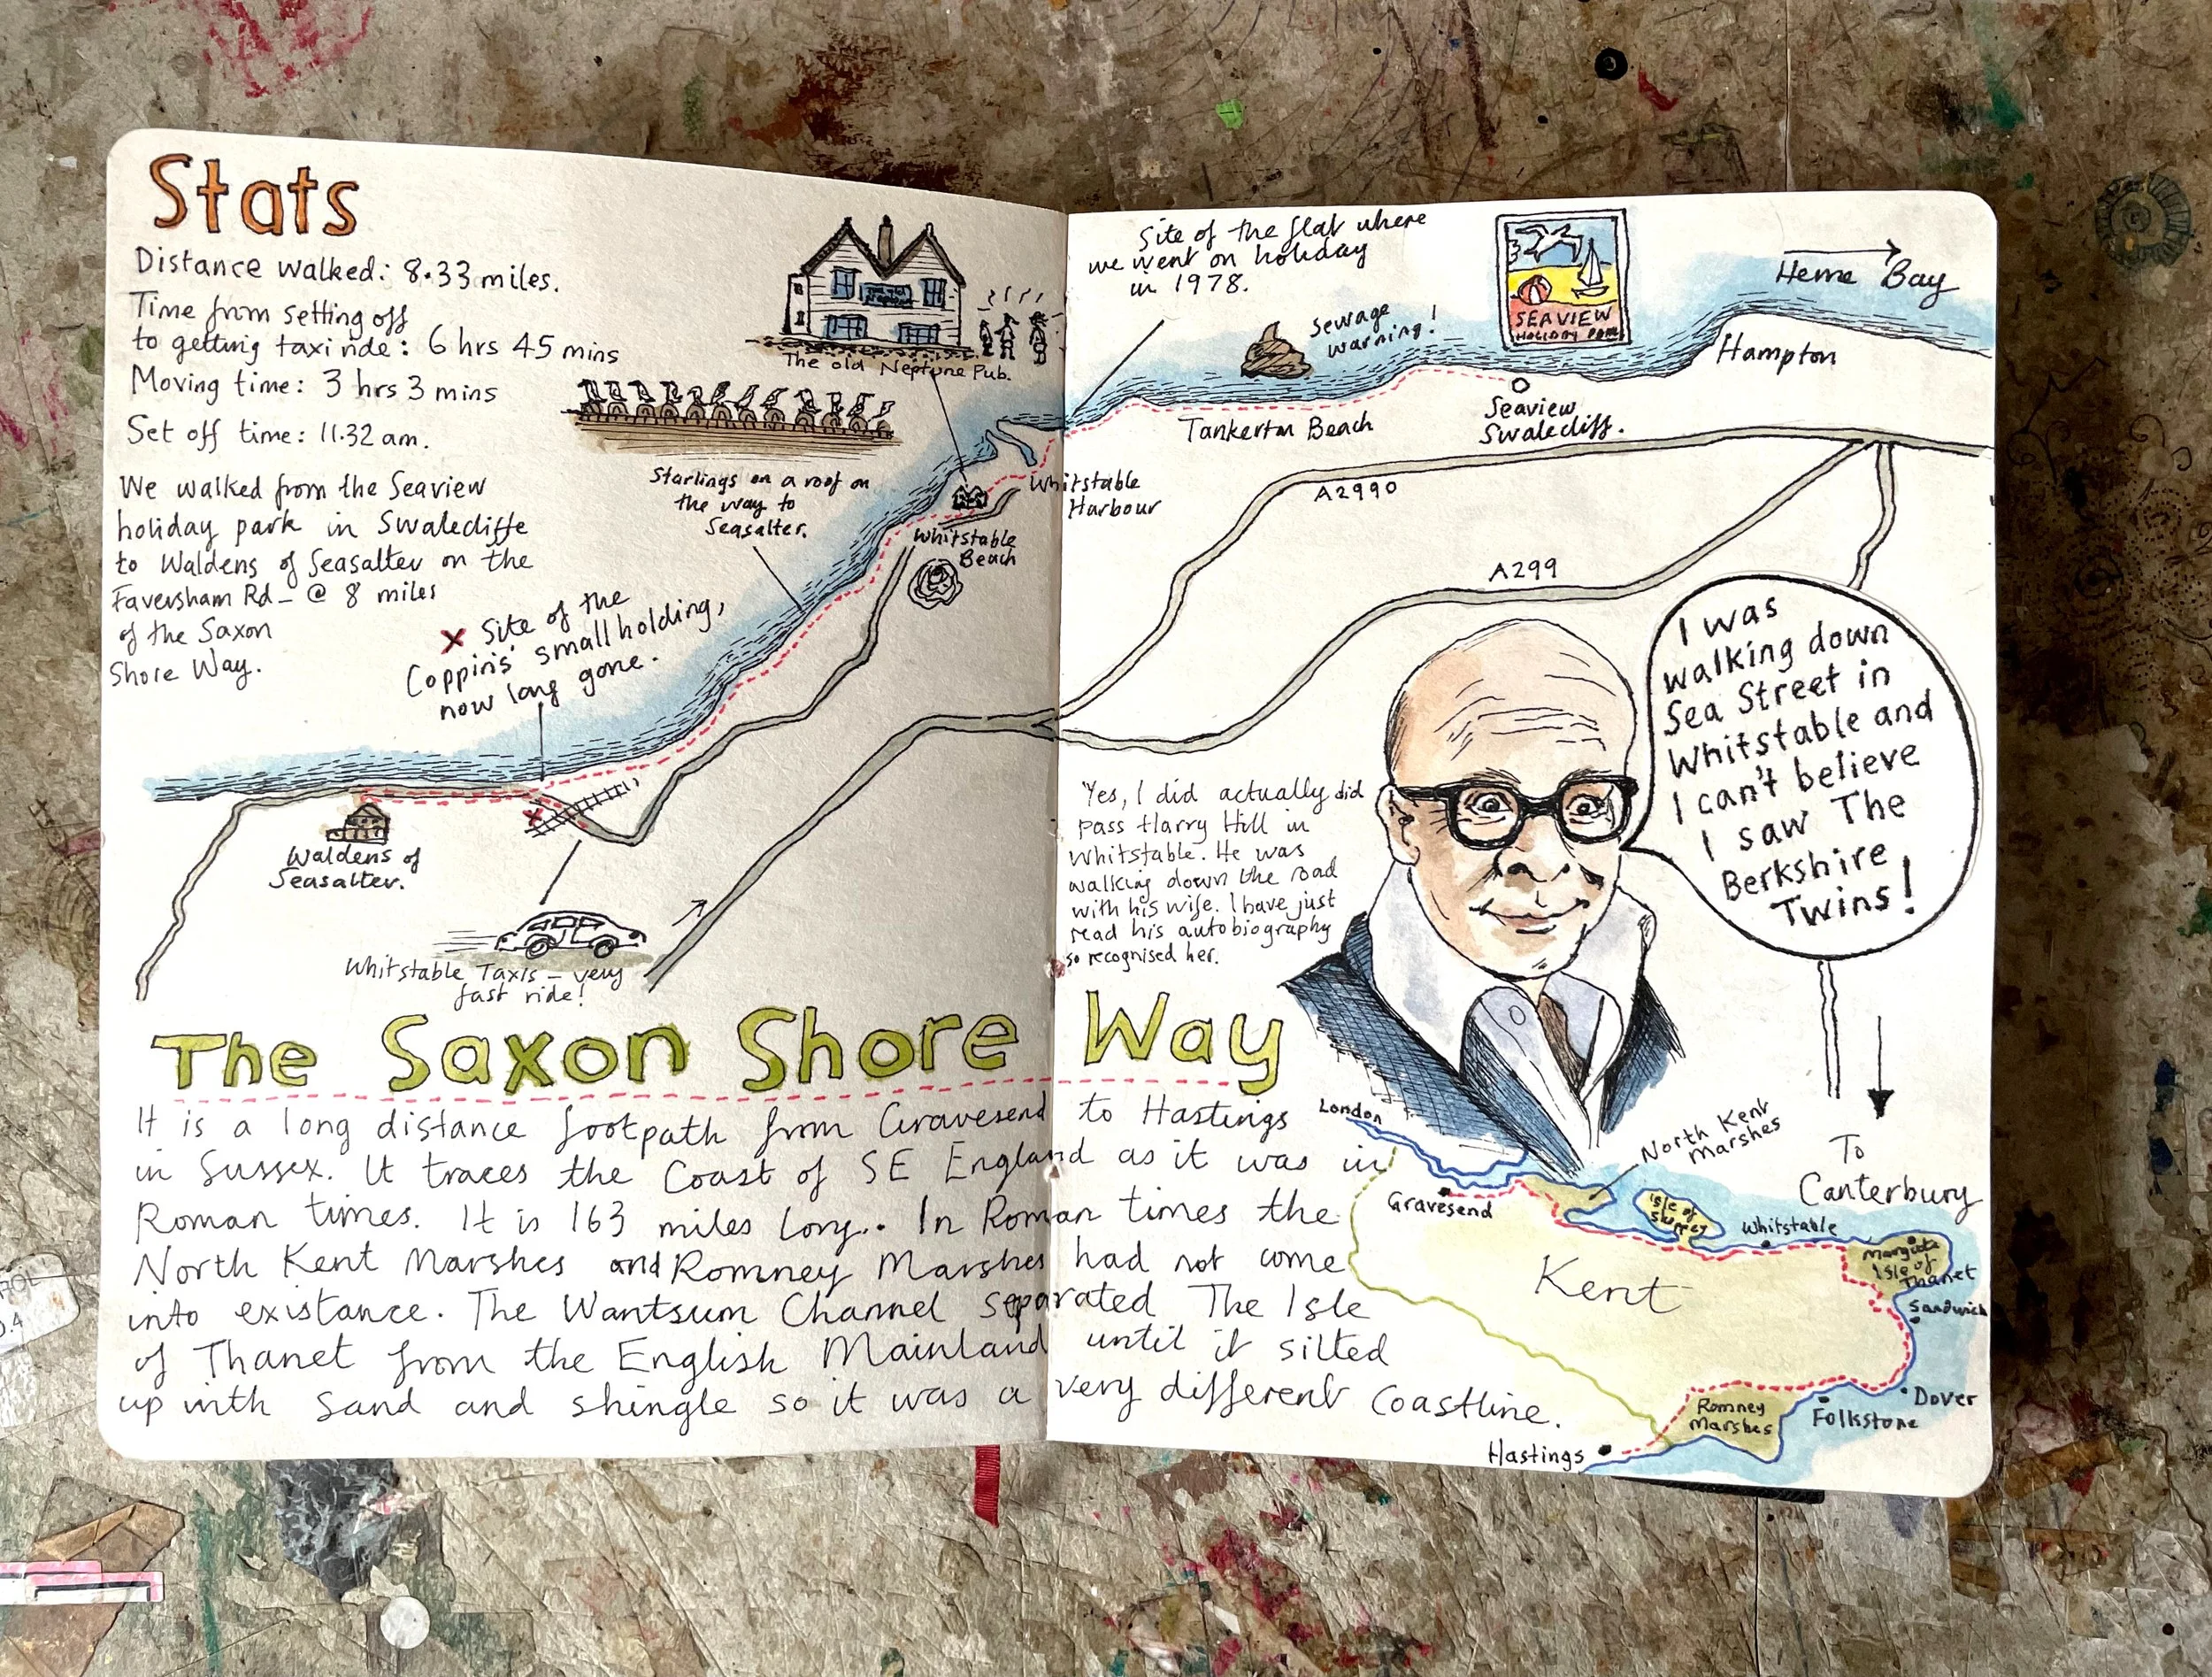 Stats
Distance walked: 8.33 miles.
Time from setting off
to getting taxi ride: 6 hrs 45 mins
Moving time: 3 hrs 3 mins
Set off time: 11.32 am.
We walked from the Seaview
holiday park in Swalecliffe
to Waldens of Seasalter on the
Faversham Rd_ @ 8 miles
of the Saxon
Shore Way.
The old Neptune Pub.
Starlings on a roof on
the way to
Seasalter.
X Site of the
Coppins' small holding,
now long gone.
Whitstable
Harbour
Whitstable
Beach
Waldens of
Seasalter.
Whitstable Taxis – very
fast ride!
Site of the flat where
we went on holiday
in 1978.
Sewage
warning!
SEAVIEW
HOLIDAY PARK
Herne Bay
Hampton
Tankerton Beach
Seaview
Swalecliff.
A2990
A299
I was
walking down
Sea Street in
Whitstable and
I can't believe
I saw The
Berkshire
Twins!
Yes, I did actually did
pass Harry Hill in
Whitstable. He was
walking down the road
with his wife. I have just
read his autobiography
so recognised her.
To
Canterbury
The Saxon Shore Way
It is a long distance footpath from Gravesend to Hastings
in Sussex. It traces the Coast of SE England as it was in
Roman times. It is 163 miles long.. In Roman times the
North Kent Marshes and Romney Marshes had not come
into existance. The Wantsum Channel separated The Isle
of Thanet from the English Mainland until it silted
up with sand and shingle so it was a very different coastline.
London
North Kent
Marshes
Gravesend
Isle of
Sheppey
Whitstable
Margate
Isle of
Thanet
Sandwich
Kent
Dover
Folkstone
Romney
Marshes
Hastings